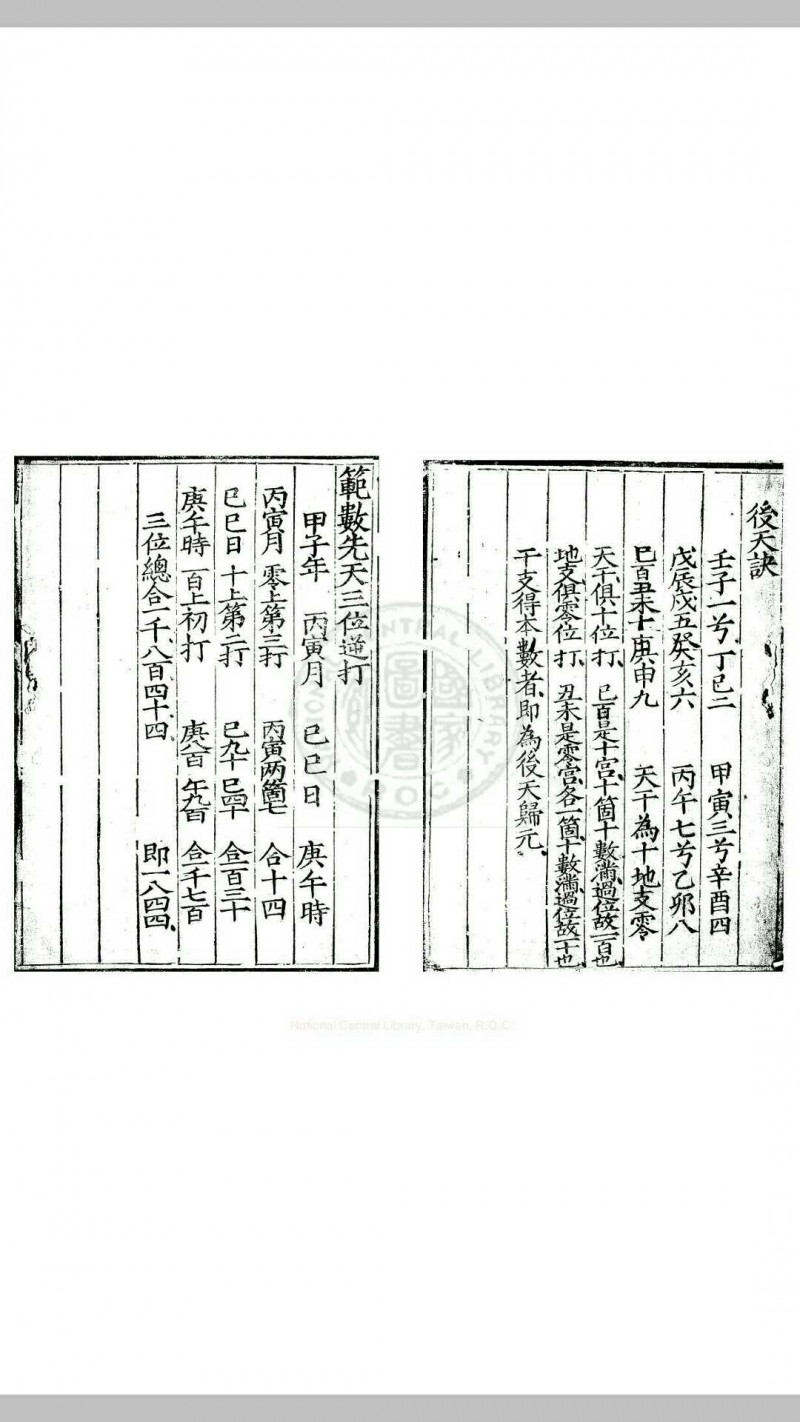 後天訣
壬子一兮丁巳二　甲寅三兮辛酉四
戊辰戌五癸亥六　丙午七兮乙卯八
己百丑未十庚申九　天干為十地支零
天干俱十位打、己百是十宮、十箇十數滿過位故一百也
地支俱零位打、丑未是零宮、各一箇十數滿過位故一十也
干支得本數者、即為後天歸元、
範數先天三位遞打
甲子年　丙寅月　己巳日　庚午時
丙寅月　零上第三打　丙寅两箇七　合十四
己巳日　十上第二打　己九十巳四十　合一百三十
庚午時　一百上初打　庚八百　午九百　合一千七百
三位總合一千八百四十四　即一八四四
國家圖書館
CENTRAL LIBRARY
R.O.C
National Central Library, Taiwan, R.O.C.